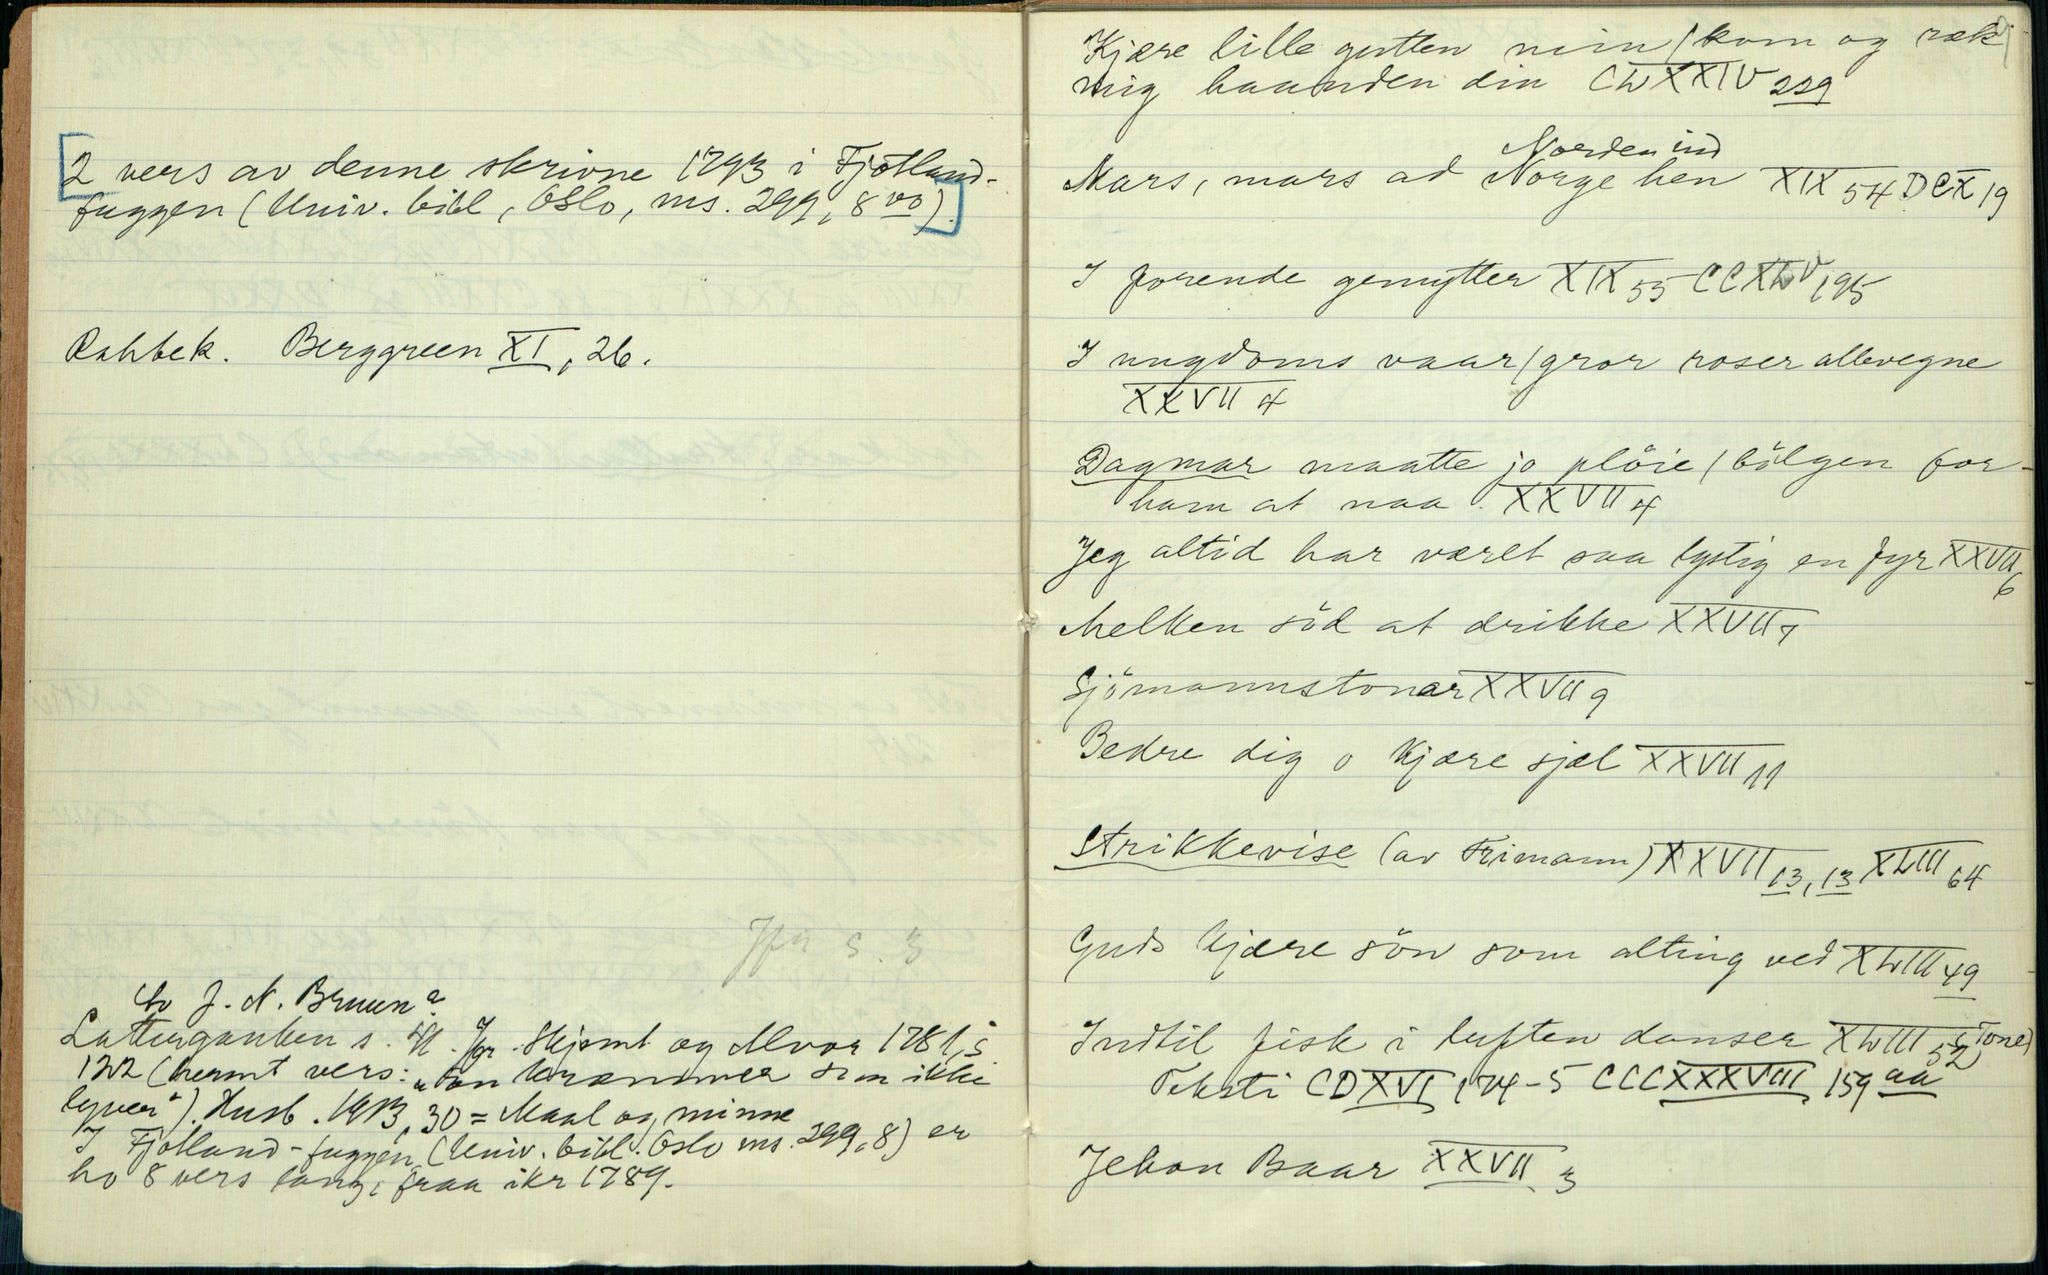 2 vers av denne skrivne 1793 i Fjotland-
fuggen (Univ. bibl, Oslo, ms. 299, 8 vo).
Rahbek. Berggreen XI, 26.
Jfr s. 3
Av J. N. Bruun?
Latterganken s. 41. Jfr. Skjemt og Alvor 1781, s.
122 (hermt vers: "En kræmmer som ikke
lyver"). Husb. 1913, 30 = Maal og minne
I Fjotland-fuggen (Univ. bibl. Oslo ms. 299, 8) er
ho 8 vers lang, fraa ikr 1789.
Kjære lille gutten min / kom og ræk
mig haanden din CLXXIV 229
Norden ind
Mars, mars ad Norge hen XIX 54 DCX 19
I forende gemytter XIX 55 CCXLV 195
I ungdoms vaar / gror roser allevegne
XXVII 4
Dagmar maatte jo plöie / bölgen for
ham at naa. XXVII 4
Jeg altid har været saa lystig en fyr XXVII 6
Melken söd at drikke XXVII 7
Sjömannstonar XXVII 9
Bedre dig o kjære sjæl XXVII 11
Strikkevise (av Frimann) XXVII 13, 13 XLIII 64
Guds kjære sön som alting ved XLIII 49
Indtil fisk i luften danser XLIII 52 (Tone)
Tekst i CDXVI 174-5 CCCXXXVIII 159 aa
Jehon Baar XXVII 3